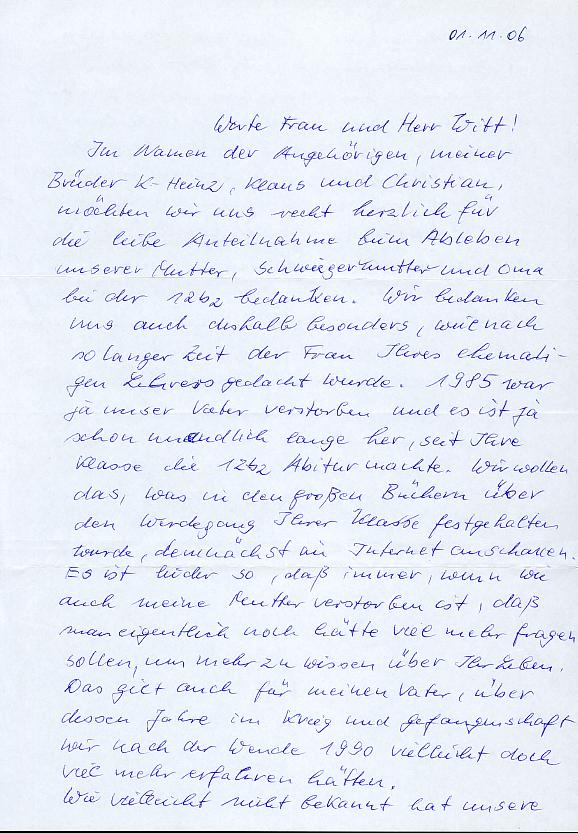 01.11.06
Werte Frau und Herr Witt!
Im Namen der Angehörigen, meiner
Brüder K-Heinz, Klaus und Christian,
möchten wir uns recht herzlich für
die liebe Anteilnahme beim Ableben
unserer Mutter, Schwiegermutter und Oma
bei der 12b2 bedanken. Wir bedanken
uns auch deshalb besonders, weil nach
so langer Zeit der Frau Ihres ehemali-
gen Lehrers gedacht wurde. 1985 war
ja unser Vater verstorben und es ist ja
schon unendlich lange her, seit Ihre
Klasse die 12b2 Abitur machte. Wir wollen
das, was in den großen Büchern über
den Werdegang Ihrer Klasse festgehalten
wurde, demnächst im Internet anschauen.
Es ist leider so, daß immer, wenn wie
auch meine Mutter verstorben ist, daß
man eigentlich noch hätte viel mehr fragen
sollen, um mehr zu wissen über Ihr Leben.
Das gilt auch für meinen Vater, über
dessen Jahre im Krieg und Gefangenschaft
wir nach der Wende 1990 vielleicht doch
viel mehr erfahren hätten.
Wie vielleicht nicht bekannt hat unsere